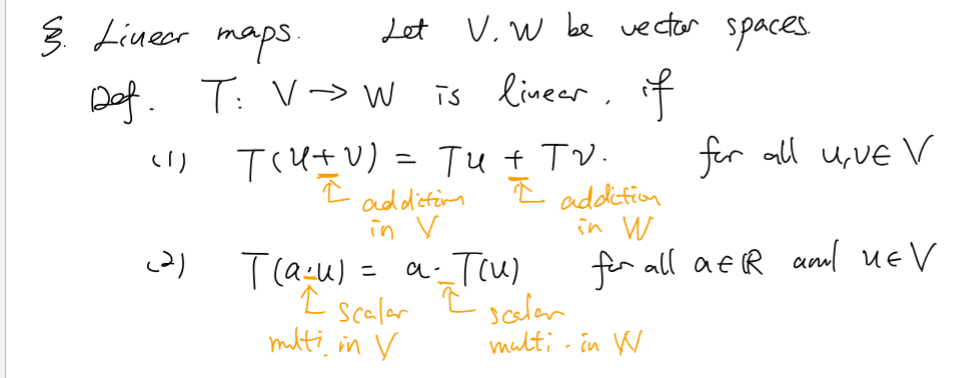 §. Linear maps. Let V, W be vector spaces.
Def. T: V → W is linear, if
(1) T(u+v) = Tu + Tv. for all u,v ∈ V
↑ addition ↑ addition
in V in W
(2) T(a·u) = a·T(u) for all a ∈ ℝ and u ∈ V
↑ scalar ↑ scalar
multi. in V multi. in W